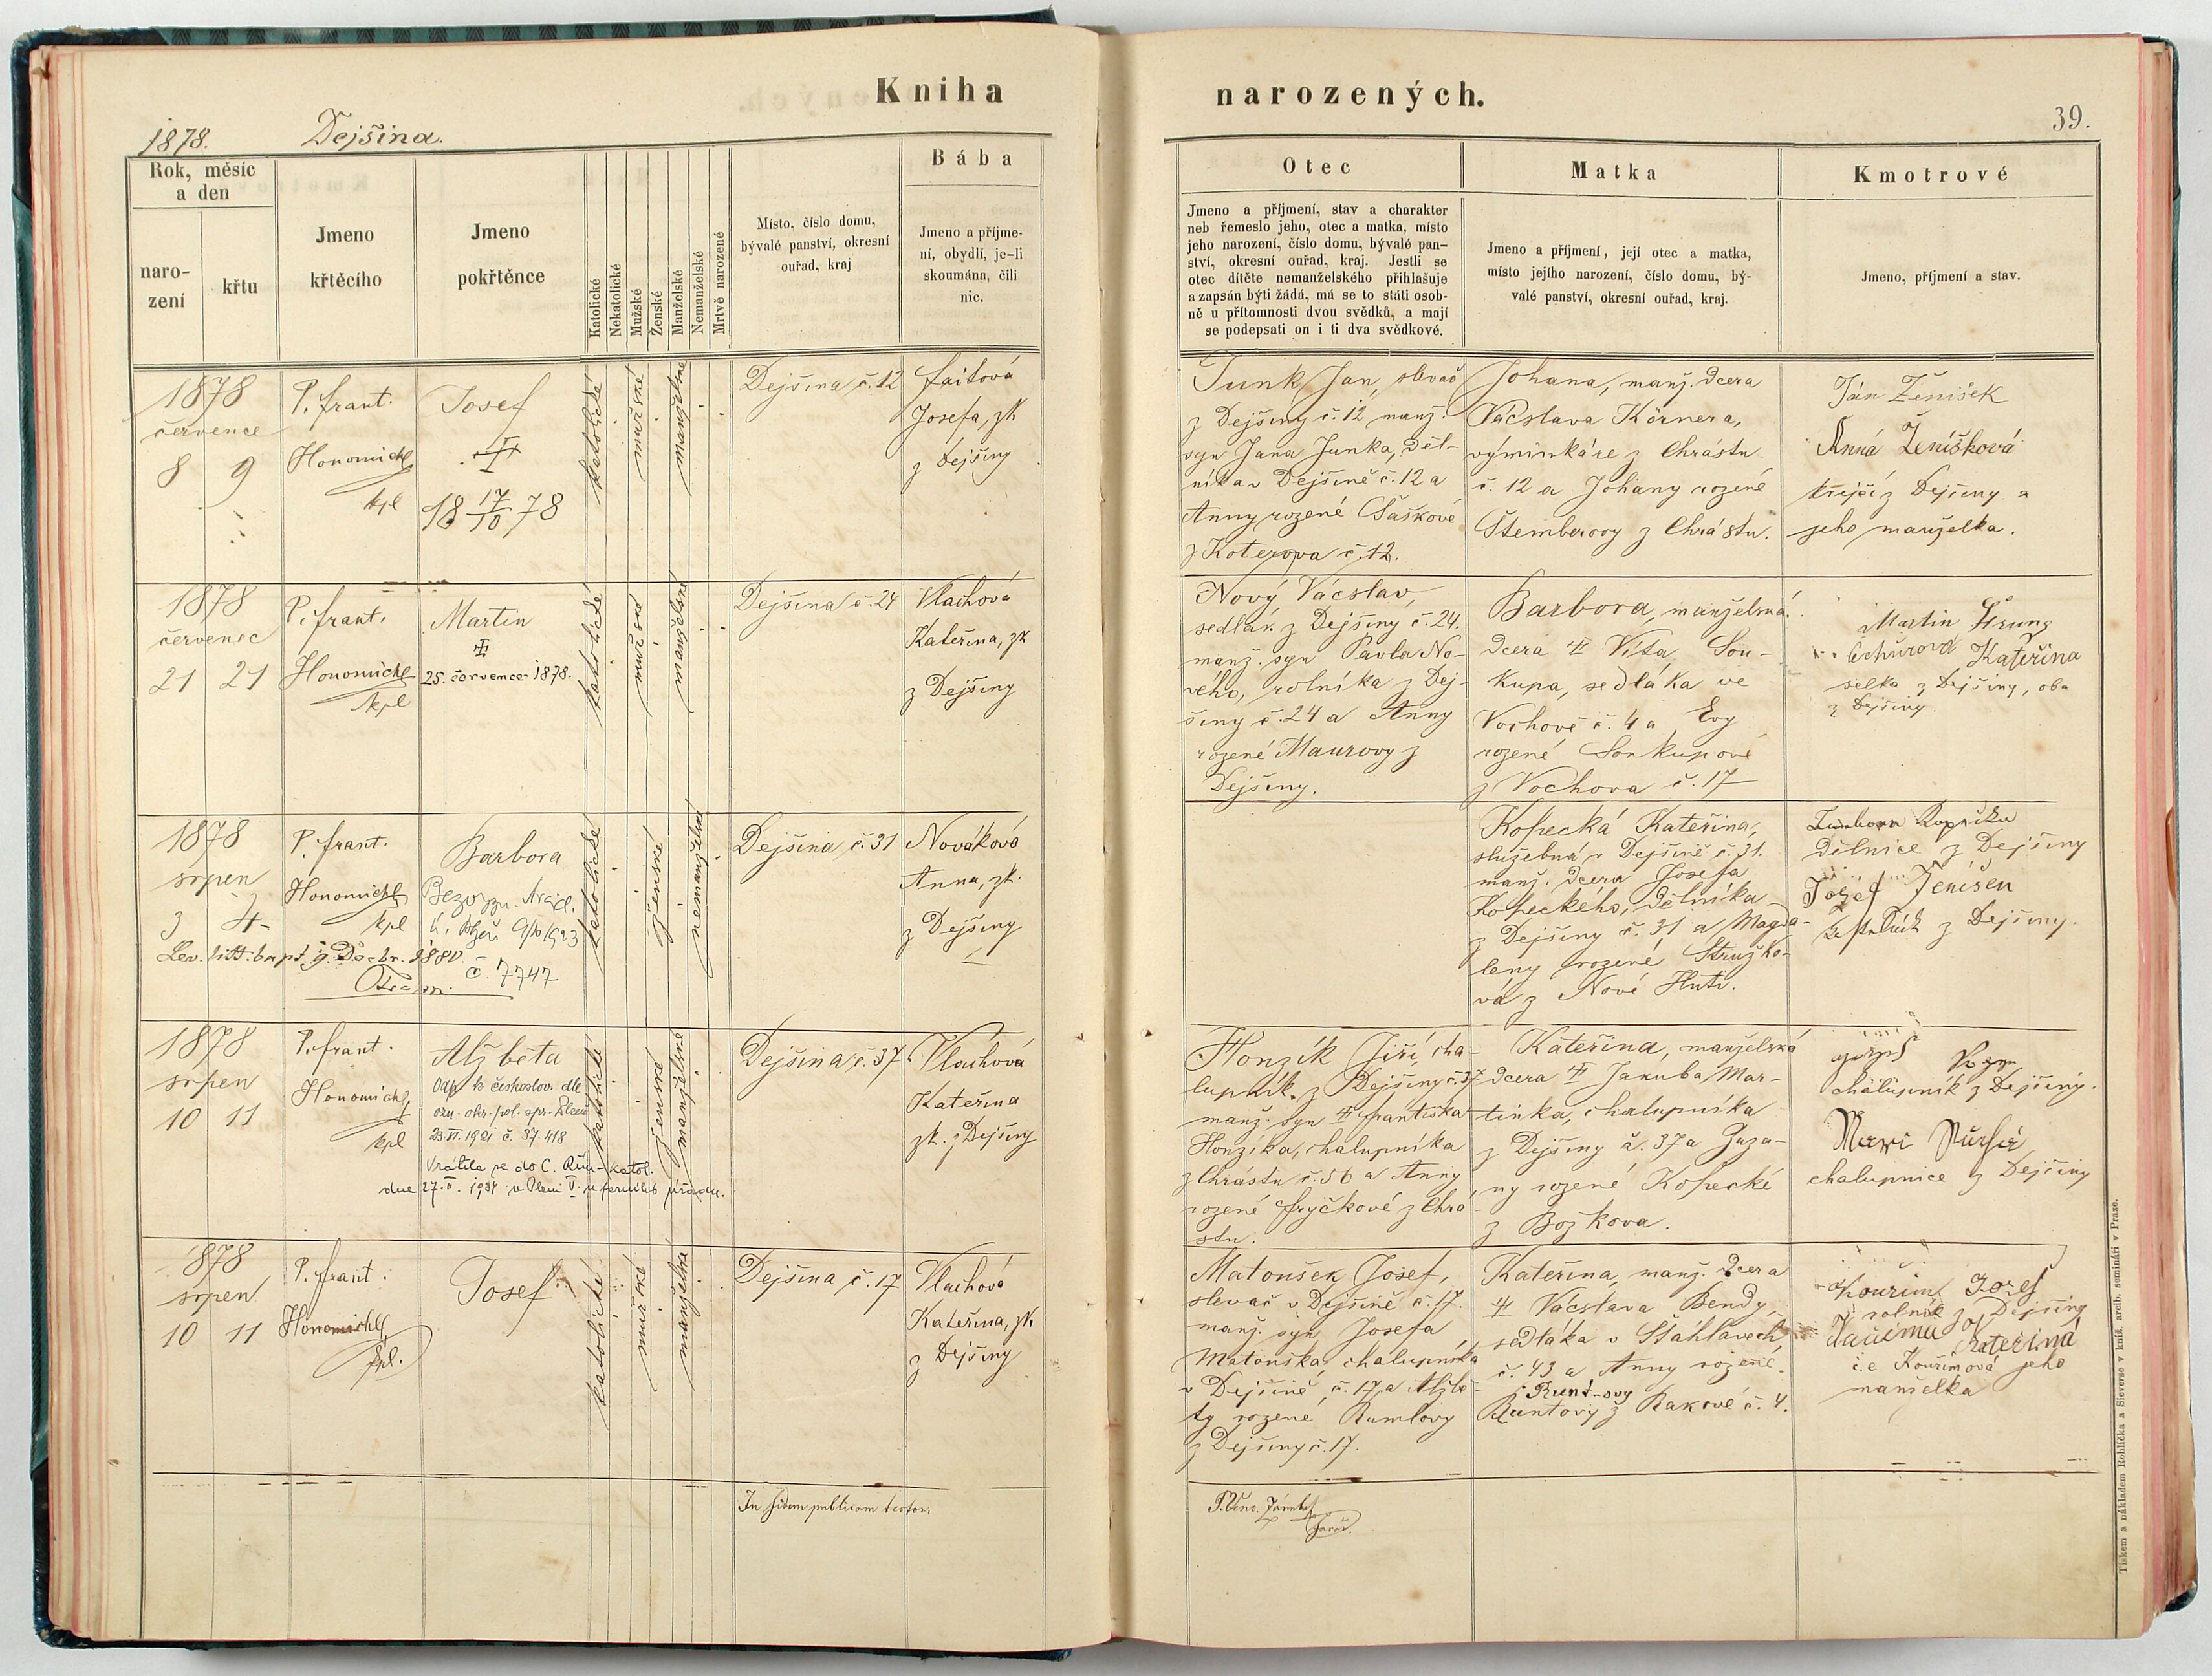 Kniha
narozených.
39.
1878.
Dejšina.
Rok, měsíc
a den
naro-
zení
křtu
Jmeno
křtěcího
Jmeno
pokřtěnce
Katolické
Nekatolické
Mužské
Ženské
Manželské
Nemanželské
Mrtvě narozené
Místo, číslo domu,
bývalé panství, okresní
ouřad, kraj
Bába
Jmeno a příjme-
ní, obydlí, je-li
skoumána, čili
nic.
Otec
Jmeno a příjmení, stav a charakter
neb řemeslo jeho, otec a matka, místo
jeho narození, číslo domu, bývalé pan-
ství, okresní ouřad, kraj. Jestli se
otec dítěte nemanželského přihlašuje
a zapsán býti žádá, má se to státi osob-
ně u přítomnosti dvou svědků, a mají
se podepsati on i ti dva svědkové.
Matka
Jmeno a příjmení, její otec a matka,
místo jejího narození, číslo domu, bý-
valé panství, okresní ouřad, kraj.
Kmotrové
Jmeno, příjmení a stav.
1878
července
8 9
P. frant.
Honomichl
kpl
Josef
18 17/10 78
katolické
mužské
manželské
Dejšina č. 12
Faitová
Josefa, zk
z Dejšiny
Junk Jan, slevač
z Dejšiny č. 12 manž.
syn Jana Junka, děl-
níka v Dejšině č. 12 a
Anny rozené Šaškové
z Koterova č. 12.
Johana, manž. dcera
Vácslava Körnera,
výminkáře z Chrástu
č. 12 a Johany rozené
Štemberovy z Chrástu.
Ján Ženíšek
Anná Ženíšková
krejčí z Dejšiny a
jeho manželka.
1878
červenec
21 21
P. frant.
Honomichl
kpl
Martin
25. července 1878.
katolické
mužské
manželské
Dejšina č. 24
Vlachová
Kateřina, zk
z Dejšiny
Nový Vácslav,
sedlák z Dejšiny č. 24.
manž. syn Pavla No-
vého, rolníka z Dej-
šiny č. 24 a Anny
rozené Maurovy z
Dejšiny.
Barbora, manželská
dcera Víta Sou-
kupa, sedláka ve
Vochově č. 4 a Evy
rozené Soukupové
z Vochova č. 17
Martin
Kateřina
selka z Dejšiny, oba
z Dejšiny.
1878
srpen
3 4
P. frant.
Honomichl
kpl
Barbora
č. 7747
Lev. litt. bapt. 9. Decbr. 1880.
katolické
ženské
nemanželské
Dejšina č. 31
Nováková
Anna, zk.
z Dejšiny
Kopecká Kateřina,
služebná v Dejšině č. 31.
manž. dcera Josefa
Kopeckého, dělníka
z Dejšiny č. 31 a Magda-
leny rozené Stružko-
vá z Nové Huti.
dělnice z Dejšiny
Jozef
z Dejšiny.
1878
srpen
10 11
P. frant.
Honomichl
kpl
Alžběta
Odp. k českoslov. dle
ozn. okr. pol. spr. Plzeň
23. VI. 1921 č. 37.418
Vrátila se do C. Řím-katol.
katolické
ženské
manželské
Dejšina č. 37
Vlachová
Kateřina
zk. z Dejšiny
Honzík Jiří, cha-
lupník z Dejšiny č. 37
manž. syn Františka
Honzíka, chalupníka
z Chrástu č. 56 a Anny
rozené Fryčkové z Chrá-
stu.
Kateřina, manželská
dcera Jakuba Mar-
tínka, chalupníka
z Dejšiny č. 37 a Zuza-
ny rozené Kopecké
z Božkova.
chalupník z Dejšiny.
chalupnice z Dejšiny
1878
srpen
10 11
P. frant.
Honomichl
kpl.
Josef
katolické
mužské
manželské
Dejšina č. 17
Vlachová
Kateřina, zk
z Dejšiny
Matoušek Josef,
slevač v Dejšině č. 17.
manž. syn Josefa
Matouška, chalupníka
v Dejšině č. 17 a Alžbě-
ty rozené Rumlovy
z Dejšiny č. 17.
Kateřina, manž. dcera
Vácslava Bendy,
sedláka v Šťáhlavech
č. 43 a Anny rozené
Runt-ovy
Runtovy z Rakové č. 4.
Kouřim Jozef
rolník z Dejšiny
Kateřina
č.e Kouřimová jeho
manželka
In fidem publicam testor.
Tiskem a nákladem Rohlíčka a Sieverse v kníž. arcib. semináři v Praze.